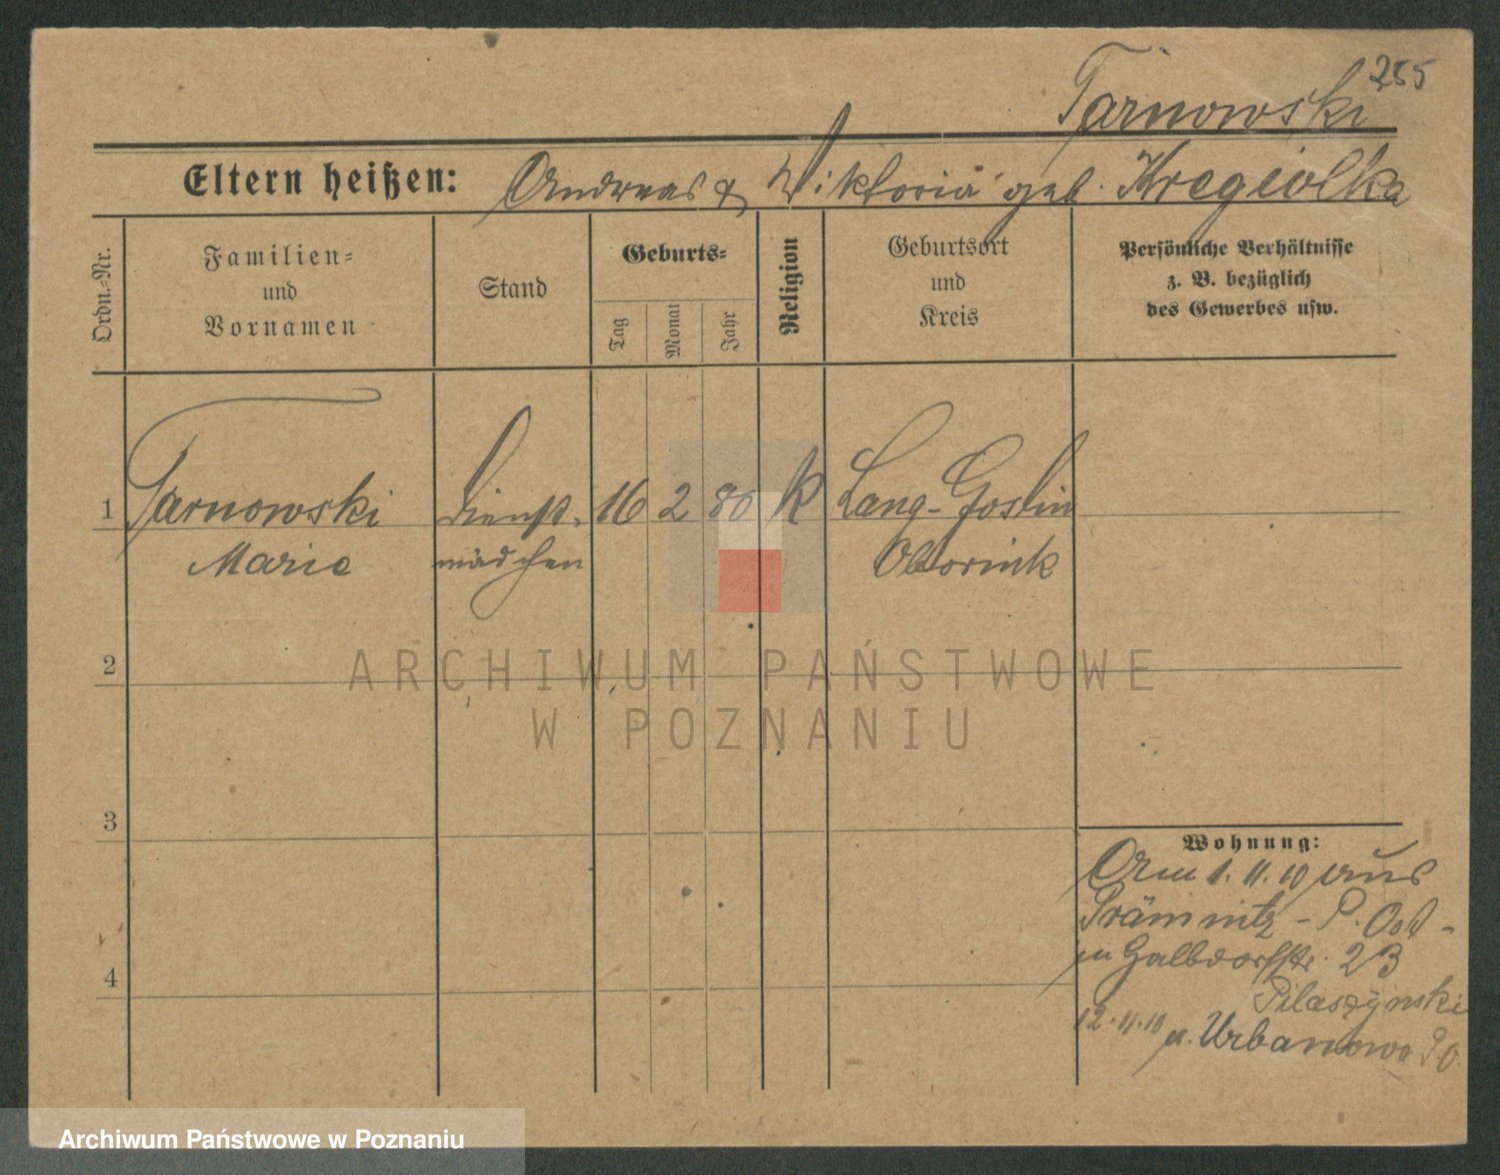 255
Tarnowski
Eltern heißen: Andreas & Wiktoria geb. Kregiolka
Ordn.-Nr.
Familien-
und
Vornamen
Stand
Geburts-
Tag
Monat
Jahr
Religion
Geburtsort
und
Kreis
Persönliche Verhältnisse
z. B. bezüglich
des Gewerbes usw.
1 Tarnowski Dienst- 16 2 80 K Lang-Goslin
Marie mädchen Obornik
2
ARCHIWUM PAŃSTWOWE
W POZNANIU
3
4
Wohnung:
Am 1.11.10 aus
Prämnitz - P. Ost -
n Galbdorfstr. 23
Pilaszynski
12.11.10
n. Urbanowo P O.
Archiwum Państwowe w Poznaniu